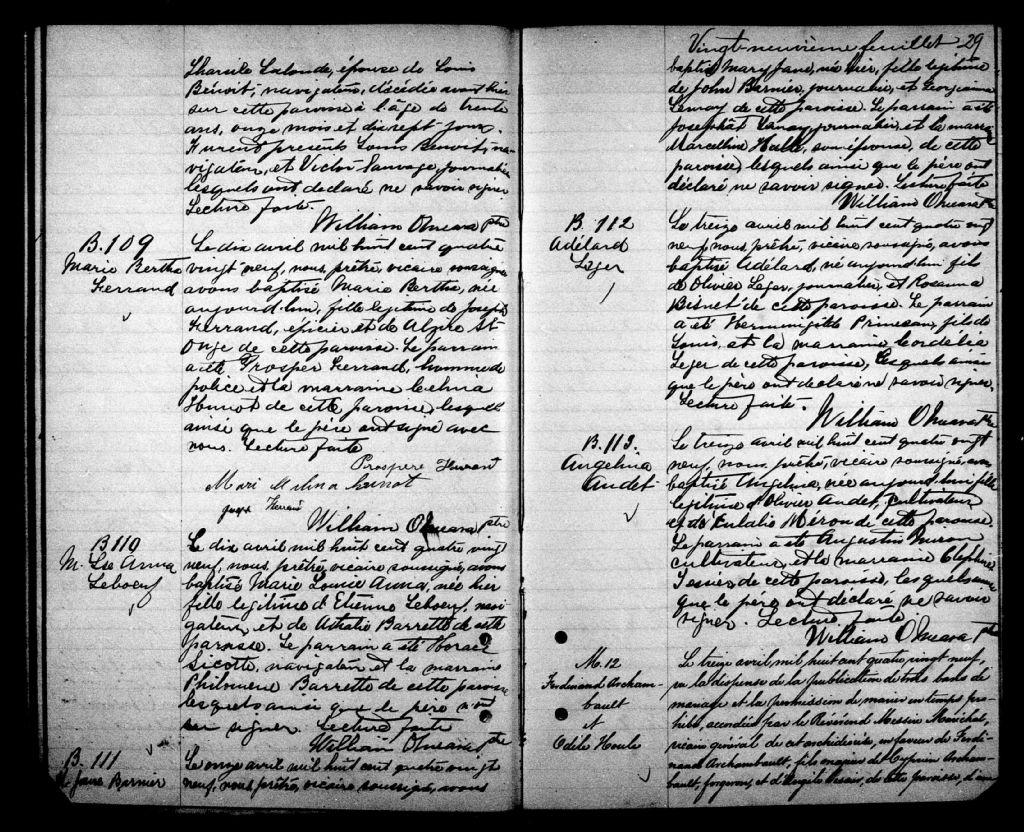 Tharsile Lalonde, épouse de Louis
Benoit, navigateur, décédée avant hier
sur cette paroisse à l'âge de trente
ans, onze mois et dix sept jours.
Furent présents Louis Benoit, na-
vigateur, et Victor Sauvage, journalier
lesquels ont declaré ne savoir signer
Lecture faite.
William Omeara ptre
B. 109
Marie Bertha
Ferrand
Le dix avril mil huit cent quatre
vingt neuf, nous, prêtre, vicaire soussigné
avons baptisé Marie Berthe, née
aujourd'hui, fille legitime de Joseph
Ferrand, epicier et de Alpire St-
Onge de cette paroisse. Le parrain
a été Prosper Ferrand, homme de
police et la marraine
de cette paroisse, lesquels
ainsi que le père ont signé avec
nous. Lecture faite
Prospere Ferrant
Mari Melina
Ferrand
William Omeara ptre
B 110
M. Lse Anna
Leboeuf
Le dix avril mil huit cent quatre vingt
neuf, nous, prêtre, vicaire soussigné, avons
baptisé Marie Louise Anna, née hier
fille legitime d'Etienne Leboeuf, navi
gateur, et de Athalie Barrette de cette
paroisse. Le parrain a été Horace
Sicotte, navigateur et la marraine
Philomene Barrette de cette paroisse
lesquels ainsi que le père n'ont
su signer. Lecture faite
William Omeara Ptre
B. 111
M. Jane Barnier
Le onze avril mil huit cent quatre vingt
neuf, nous, prêtre, vicaire soussigné, avons
Vingt-neuvième feuillet 29
baptisé Mary Jane, née hier, fille legitime
de John Barnier, journalier, et Georgianna
Lemay de cette paroisse. Le parrain a été
Josephat journalier, et la marraine
Marcelline Hulle, son épouse, de cette
paroisse, lesquels ainsi que le père ont
déclaré ne savoir signer. Lecture faite
William Omeara Ptre
B. 112
Adélard
Leger
Le treize avril mil huit cent quatre vingt
neuf, nous, prêtre, vicaire soussigné, avons
baptisé Adélard, né aujourd'hui fils
de Olivier Leger, journalier, et Rosanna
Bisnet de cette paroisse. Le parrain
a été Hermenigilde Primeau, fils de
Louis, et la marraine Cordelia
Leger de cette paroisse, lesquels ainsi
que le père ont declaré ne savoir signer.
Lecture faite.
William Omeara Ptre
B. 113.
Angelina
Audet
Le treize avril mil huit cent quatre vingt
neuf, nous, prêtre, vicaire soussigné, avons
baptisé Angelina, née aujourd'hui fille
legitime d'Olivier Audet, cultivateur
et de Eulalie Méron de cette paroisse.
Le parrain a été Augustin
cultivateur, et la marraine Elephire
Tessier de cette paroisse, lesquels ainsi
que le père ont déclaré ne savoir
signer. Lecture faite
William Omeara Ptre
M. 12
Ferdinand Archam-
bault
et
Odile Houle
Le treize avril, mil huit cent quatre vingt neuf,
vu la dispense de la publication de trois bans de
mariage et la permission de marier en temps pro
hibé, accordées par le Révérend Messire Maréchal,
vicaire général de cet archidiocèse, en faveur de Ferdi
nand Archambault, fils majeur de Cyprien Archam-
bault, forgeron, et d'Angèle de cette paroisse, d'une